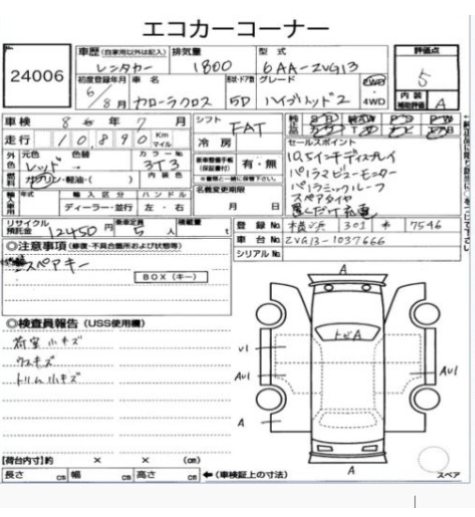 エコカーコーナー
24006
車歴（自家用以外は記入） 排気量 型式 評価点
レンタカー 1800 6AA-ZVG13 5
初度登録年月 車名 形状・ドア数 グレード
6/8月 カローラクロス 5D ハイブリッド2 4WD
内装補助評価 A
車検 8年7月 シフト FAT
走行 10,890 Km マイル 冷房
セールスポイント
外色 元色 色替 カラーNo.
レッド 3T3
10.5インチディスプレイ
パノラマビューモニター
燃料 ガソリン・軽油・( ) 内装色
有・無
パノラミックルーフ
スペアタイヤ
輸入車用 年式 輸入区分 ハンドル 名義変更期限
ディーラー・並行 左・右 月 日
リサイクル預託金 12450円 乗車定員 5人 積載量 t
登録No. 横浜 301 7546
車台No. ZVG13-1037666
シリアルNo.
○注意事項（修復・不具合箇所および状態等）
スペアキー
BOX（キー）
○検査員報告（USS使用欄）
荷室小キズ
ウスキズ
トリム小キズ
A
トビA
U1
AU1
AU1
A
A
スペア
【荷台内寸】約 × × (cm)
長さ cm 幅 cm 高さ cm ←（車検証上の寸法）